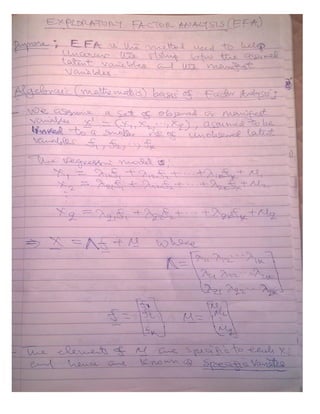 EXPLORATORY FACTOR ANALYSIS (EFA)
Purpose; EFA is the method used to help
uncover the between the assumed
latent variables and the manifest
variables
Algebraic (mathematic) basis of Factor Analysis;
We assume a set of observed or manifest
variables X' = (X₁, X₂, ..., X_q), assumed to be
linked to a smaller no. of unobserved latent
variables f₁, f₂, ..., f_k
The regression model is:
X₁ = λ₁₁f₁ + λ₁₂f₂ + ... + λ₁ₖfₖ + μ₁
X₂ = λ₂₁f₁ + λ₂₂f₂ + ... + λ₂ₖfₖ + μ₂
X_q = λ_q₁f₁ + λ_q₂f₂ + ... + λ_qₖfₖ + μ_q
⇒ X = Λf + μ where
Λ = [λ₁₁ λ₁₂ ... λ₁ₖ
λ₂₁ λ₂₂ ... λ₂ₖ
λ_q₁ λ_q₂ ... λ_qₖ]
f = [f₁ f₂ ⋮ fₖ] μ = [μ₁ μ₂ ⋮ μ_q]
The elements of μ are specific to each Xᵢ
and hence are known as Specific Variates